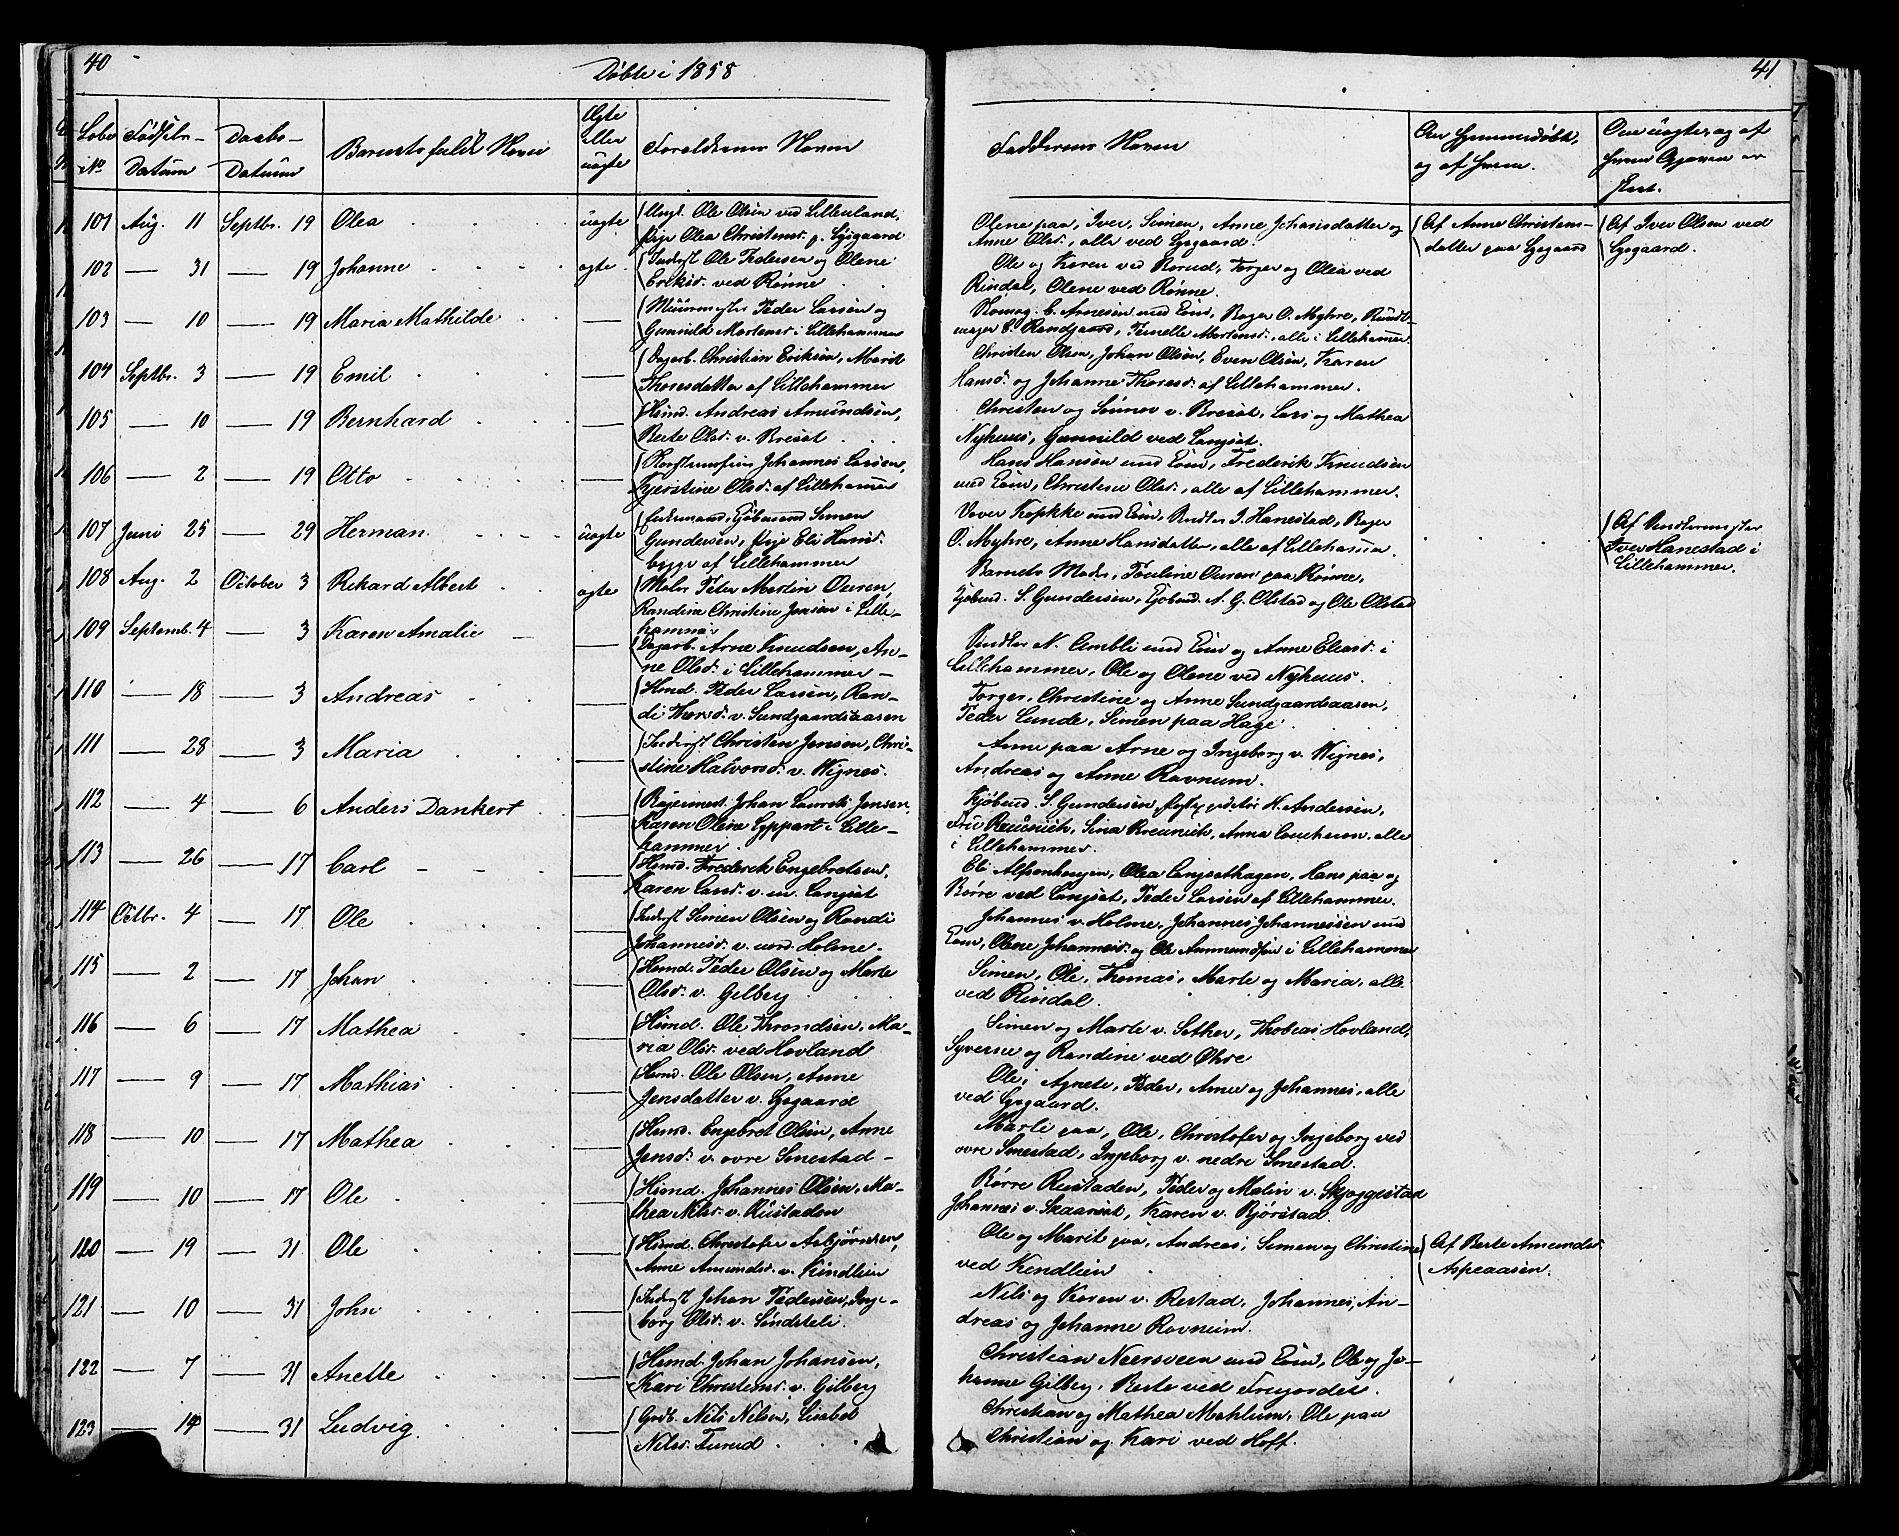 40
Døbte i 1858
Løbe No
Fødsels-Datum
Daabs-Datum
Barnets fulde Navn
Ægte eller uægte
Forældrenes Navne
101 Aug. 11 Septbr. 19 Olea uægte Ungk. Ole Olsen ved Lillerland,
Pige Olea Christensd. p. Lysgaard
102 — 31 — 19 Johanne ægte Inderst Ole Pedersen og Olene
Eriksd. ved Rønne
103 — 10 — 19 Maria Mathilde — Muurmester Peder Larsen og
Gunild Mortensd. i Lillehammer
104 Septbr. 3 — 19 Emil — Dagarb. Christian Eriksen, Marit
Thoresdatter af Lillehammer
105 — 10 — 19 Bernhard — Huusmd. Andreas Amundsen,
Berte Olsd. v. Bresæt
106 — 2 — 19 Otto — Johannes Larsen,
Kjerstine Olsd. af Lillehammer
107 Juni 25 — 29 Herman uægte Simen
Gundersen, Pige Eli Hansd.
bygge af Lillehammer
108 Aug. 2 October 3 Rikard Albert ægte Maler Peter Martin Ouren,
Randine Christine Jensen i Lille-
hammer
109 Septemb. 4 — 3 Karen Amalie — Dagarb. Arne Knudsen, An-
ne Olsd. i Lillehammer
110 — 18 — 3 Andreas — Husmd. Peder Larsen, Ran-
di Thorsd. v. Sundgaardsaasen
111 — 28 — 3 Maria — Inderst Christen Jensen, Chri-
stine Halvorsd. v. Wignes.
112 — 4 — 6 Anders Dankert — Johan Laurits Jensen,
Karen Oline Lyppart i Lille-
hammer
113 — 26 — 17 Carl — Husmd. Frederik Engebretsen,
Karen Larsd. v. m. Langsæt
114 Octbr. 4 — 17 Ole — Inderst Simen Olsen og Randi
Johannesd. v. nord. Holme
115 — 2 — 17 Johan — Husmd. Peder Olsen og Marte
Olsd. v. Gilberg
116 — 6 — 17 Mathea — Husmd. Ole Throndsen, Ma-
ria Olsd. ved Hovland
117 — 9 — 17 Mathias — Husmd. Ole Olsen, Anne
Jensdatter v. Lysgaard
118 — 10 — 17 Mathea — Husmd. Engebret Olsen, Anne
Jensd. v. øvre Smestad
119 — 10 — 17 Ole — Husmd. Johannes Olsen, Ma-
thea Nilsd. v. Rustaden
120 — 19 — 31 Ole — Husmd. Christofer Asbjørnsen,
Anne Amundsd. v. Kindlien
121 — 10 — 31 John — Inderst Johan Pedersen, Inge-
borg Olsd. v. Sindsteli
122 — 7 — 31 Anette — Husmd. Johan Johansen,
Kari Christensd. v. Gilberg
123 — 14 — 31 Ludvig — Grdb. Nils Nilsen, Lisabet
Nilsd. Furud
41
Faddernes Navne
Om hjemmedøbt, og af hvem.
Om uægte, og af hvem Opgaven er skeet.
Olene paa, Iver, Simen, Anne Johansdatter og
Anne Olsd., alle ved Lysgaard.
Af Anne Christens-
datter paa Lysgaard
Af Iver Olsen ved
Lysgaard.
Ole og Karen ved Rorud, Torger og Olea ved
Rindal, Olene ved Rønne.
C. Arnesen med Kone, Bager O. Myhre, Bundt-
mager C. Randgaard, Pernelle Mortensd., alle i Lillehammer.
Christen Olsen, Johan Olsen, Even Olsen, Karen
Hansd. og Johanne Thoresd. af Lillehammer.
Christen og Simen v. Bresæt, Lars og Mathea
Nyhuus, Gunnild ved Langsæt.
Hans Hansen med Kone, Frederik Knudsen
med Kone, Christine Olsd., alle af Lillehammer.
Væver Kopkke med Kone, I. Hanestad, Bager
O. Myhre, Anne Hansdatter, alle af Lillehammer.
Af
Iver Hanestad i
Lillehammer.
Barnets Moder, Pauline Ouren paa Rønne,
Kjøbmd. S. Gundersen, Kjøbmd. A. G. Olstad og Ole Olstad
N. Amble med Kone og Anne Eliasd. i
Lillehammer, Ole og Olene ved Nyhuus.
Torger, Christine og Anne Sundgaardsaasen,
Peder Lunde, Simen paa Hage.
Anne paa Arne og Ingeborg v. Wignes,
Andreas og Anne Ravnum.
Kjøbmd. S. Gundersen, H. Andersen,
Fru Breunich, Sina Breunich, Anna, alle
i Lillehammer.
Eli Alfsenhaugen, Olea Langsethagen, Hans paa og
Børre ved Langsæt, Peder Larsen af Lillehammer.
Johannes v. Holme, Johannes Johannessen med
Kone, Olene Johannesd. og Ole Ammundsen i Lillehammer
Simen, Ole, Thomas, Marte og Maria, alle
ved Rindal.
Simen og Marte v. Sether, Thobias Hovland,
Syverine og Randine ved Øhre
Ole, Agnete, Peder, Anne og Johannes, alle
ved Lysgaard.
Marte paa, Ole, Christofer og Ingeborg ved
øvre Smestad, Ingeborg v. nedre Smestad.
Børre Rustaden, Peder og Malin v. Skjoggestad
Johannes v. Skaarsæt, Karen v. Bjørstad.
Ole og Marit paa, Andreas, Simen og Christine
ved Kindlien
Af Berte Amundsd.
Aspeaasen.
Nils og Karen v. Restad, Johannes, An-
dreas og Johanne Ravnum.
Christian Neersveen med Kone, Ole og Jo-
hanne Gilberg, Berte ved
Christian og Mathea Mæhlum, Ole paa
Christian og Kari ved Hoff.